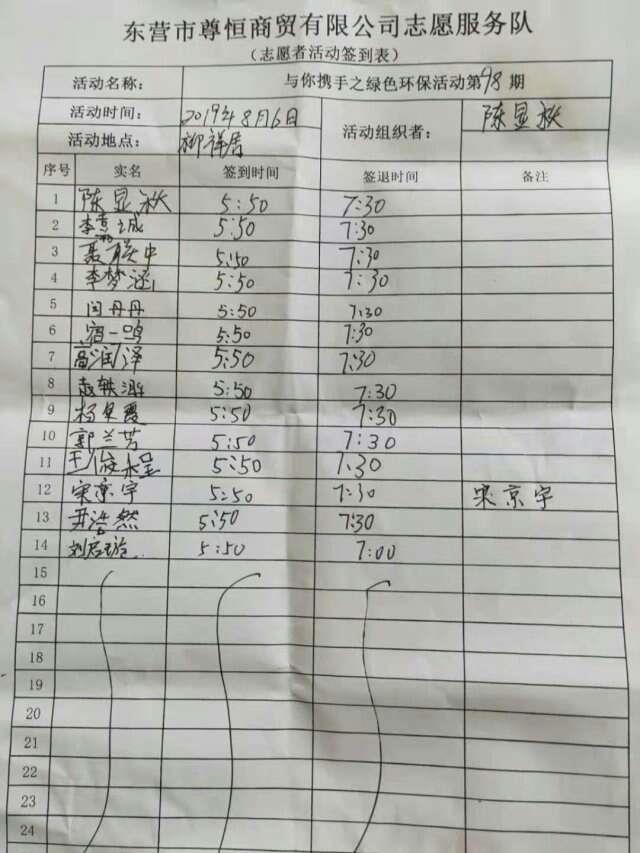 东营市尊恒商贸有限公司志愿服务队
（志愿者活动签到表）
活动名称： 与你携手之绿色环保活动第98期
活动时间： 2019年8月6日 活动组织者： 陈显秋
活动地点： 柳祥居
序号 实名 签到时间 签退时间 备注
1 陈显秋 5:50 7:30
2 李 成 5:50 7:30
3 聂 中 5:50 7:30
4 李梦涵 5:50 7:30
5 闫丹丹 5:50 7:30
6 宿一鸣 5:50 7:30
7 高润泽 5:50 7:30
8 赵轶 5:50 7:30
9 杨 霞 5:50 7:30
10 郭兰芳 5:50 7:30
11 5:50 7:30
12 宋京宇 5:50 7:30 宋京宇
13 尹浩然 5:50 7:30
14 刘 5:50 7:00
15
16
17
18
19
20
21
22
23
24